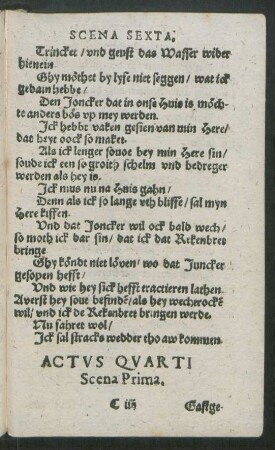 SCENA SEXTA.
Trincket / vnd geust das Wasser wider
hienein
Ghy möthet by lyse niet seggen / wat ick
gedain hebbe /
Den Joncker dat in onse Huis is möch-
te anders bös vp mey werden.
Ick hebbe vaken gesien van min Here /
dat heye oock so maket.
Als ick lenger souoe hey min Here sin /
soude ick een so groith schelm vnd bedreger
werden als hey is.
Ick mus nu na Huis gahn /
Denn als ick so lange veth bliffe / sal myn
Here kiffen.
Vnd dat Joncker wil ock bald wech /
so moth ick dar sin / dat ick dat Rekenbret
bringe
Ghy köndt niet löven / wo dat Juncker
gesopen hefft /
Vnd wie hey sick hefft tractieren lathen.
Averst hey soue befinde / als hey wech
wil / vnd ick de Rekenbret bringen werde.
Nu fahret wol /
Ick sal stracks wedder tho aw kommen.
ACTVS QVARTI
Scena Prima.
C iiij
Gastge-